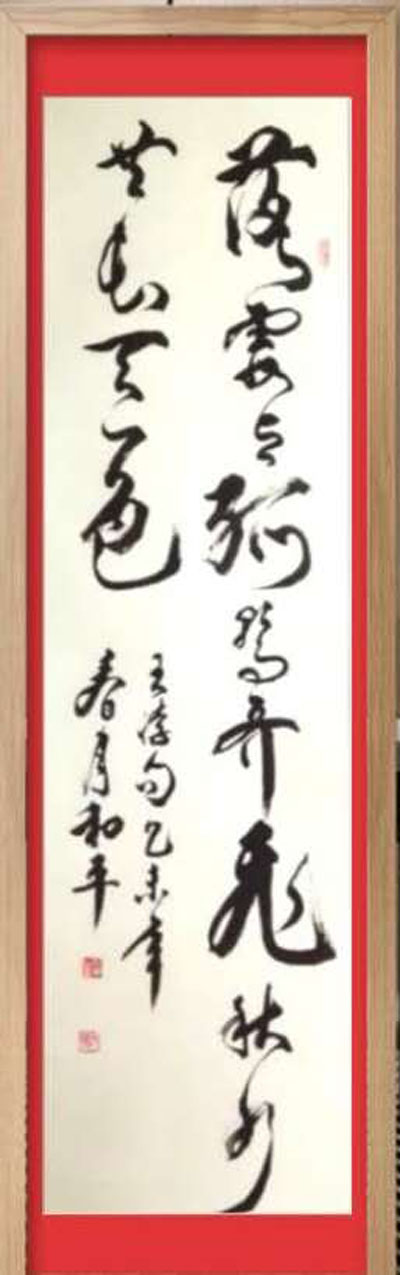 落霞与孤鹜齐飞秋水
共长天一色
王勃句乙未年
春月和平